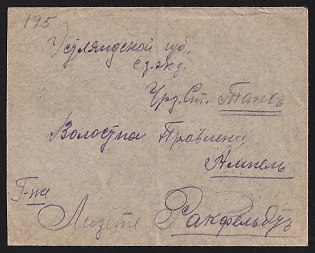 195
Эстляндской губ.
с. з. жд.
Чрз. Ст. Тапсъ
Волостное Правление
Ампель
Г-же
Лизетте Ракфельдтъ